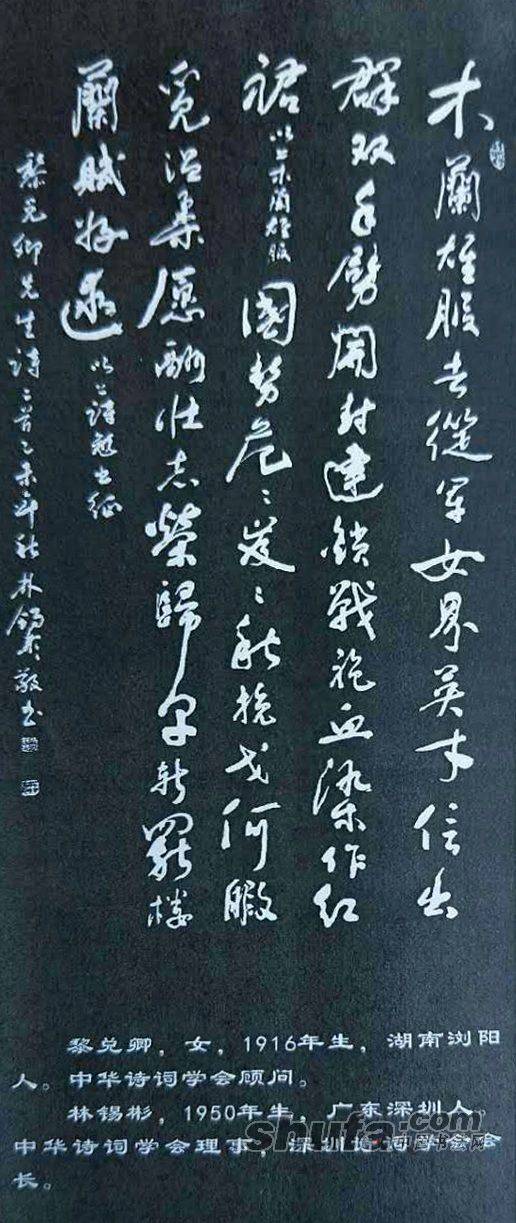 木蘭雄服去從军女界英才信出
群双手劈開封建鎖戰袍血染作红
裙以上木蘭雄服國势危々岌々秋挽戈何暇
覓温柔愿酬壮志榮歸早新罷楼
蘭賦好逑以上诗魁出征
黎兑卿先生诗二首乙未年秋林锡彬敬书
黎兑卿，女，1916年生，湖南浏阳
人。中华诗词学会顾问。
林锡彬，1950年生，广东深圳人，
中华诗词学会理事，深圳诗词学会会
长。
shufa.com
中国书法网